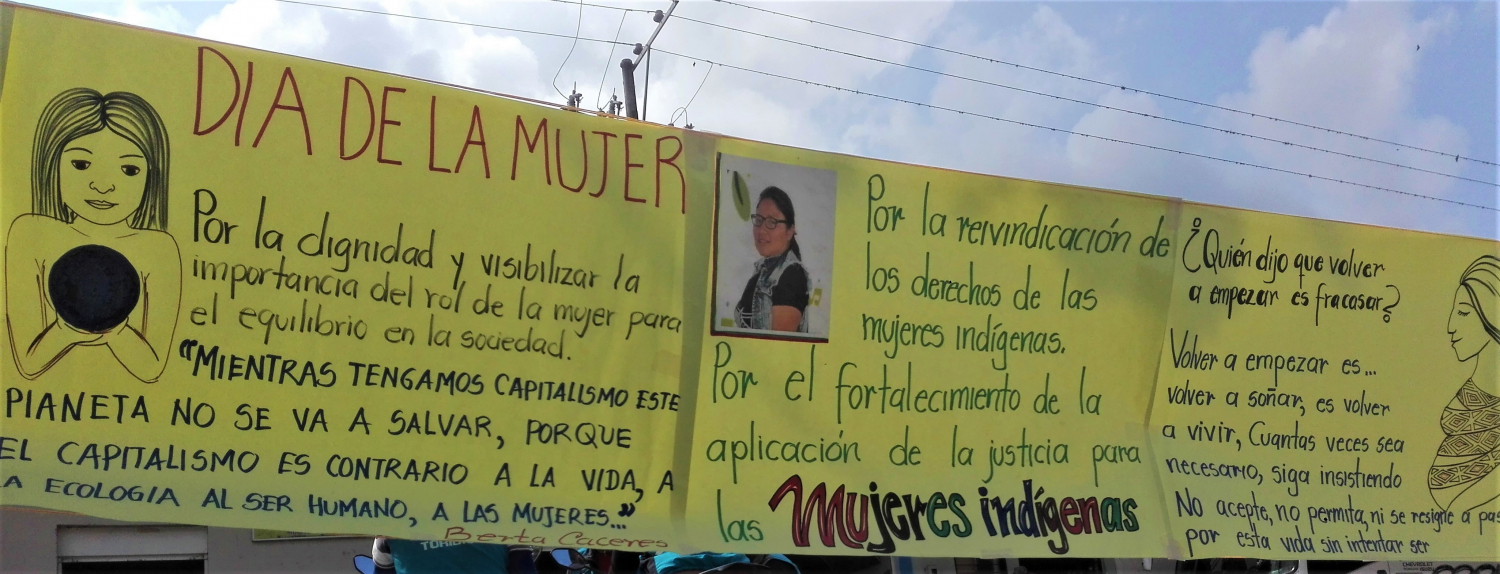 DIA DE LA MUJER
Por la dignidad y visibilizar la
importancia del rol de la mujer para
el equilibrio en la sociedad.
"MIENTRAS TENGAMOS CAPITALISMO ESTE
PLANETA NO SE VA A SALVAR, PORQUE
EL CAPITALISMO ES CONTRARIO A LA VIDA, A
LA ECOLOGIA AL SER HUMANO, A LAS MUJERES..."
Berta Caceres
Por la reivindicación de
los derechos de las
mujeres indígenas.
Por el fortalecimiento de la
aplicación de la justicia para
las Mujeres indígenas
¿Quién dijo que volver
a empezar es fracasar?
Volver a empezar es...
volver a soñar, es volver
a vivir, Cuantas veces sea
necesario, siga insistiendo
No acepte, no permita, ni se resigne a
por esta vida sin intentar ser
CHEVROLET